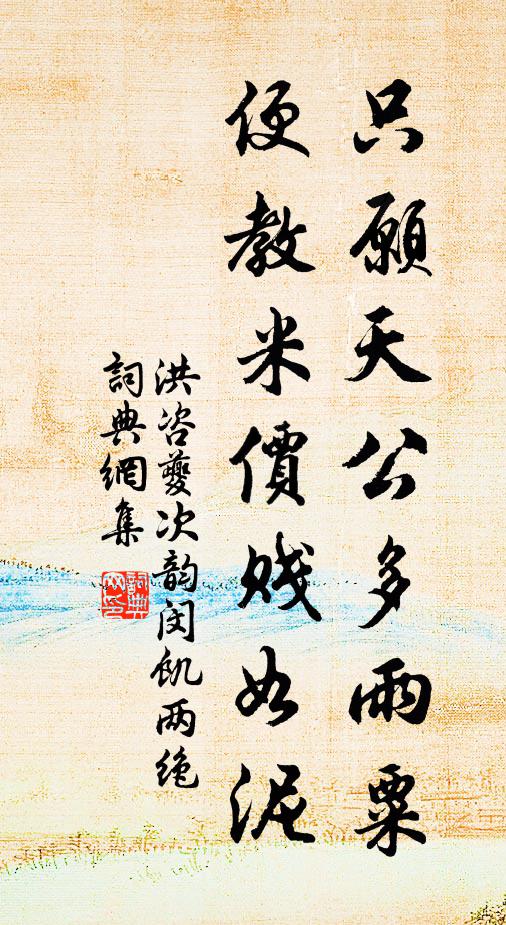 只願天公多雨粟
便教米價賤如泥
洪咨夔次韵闵飢两绝
詞典網集